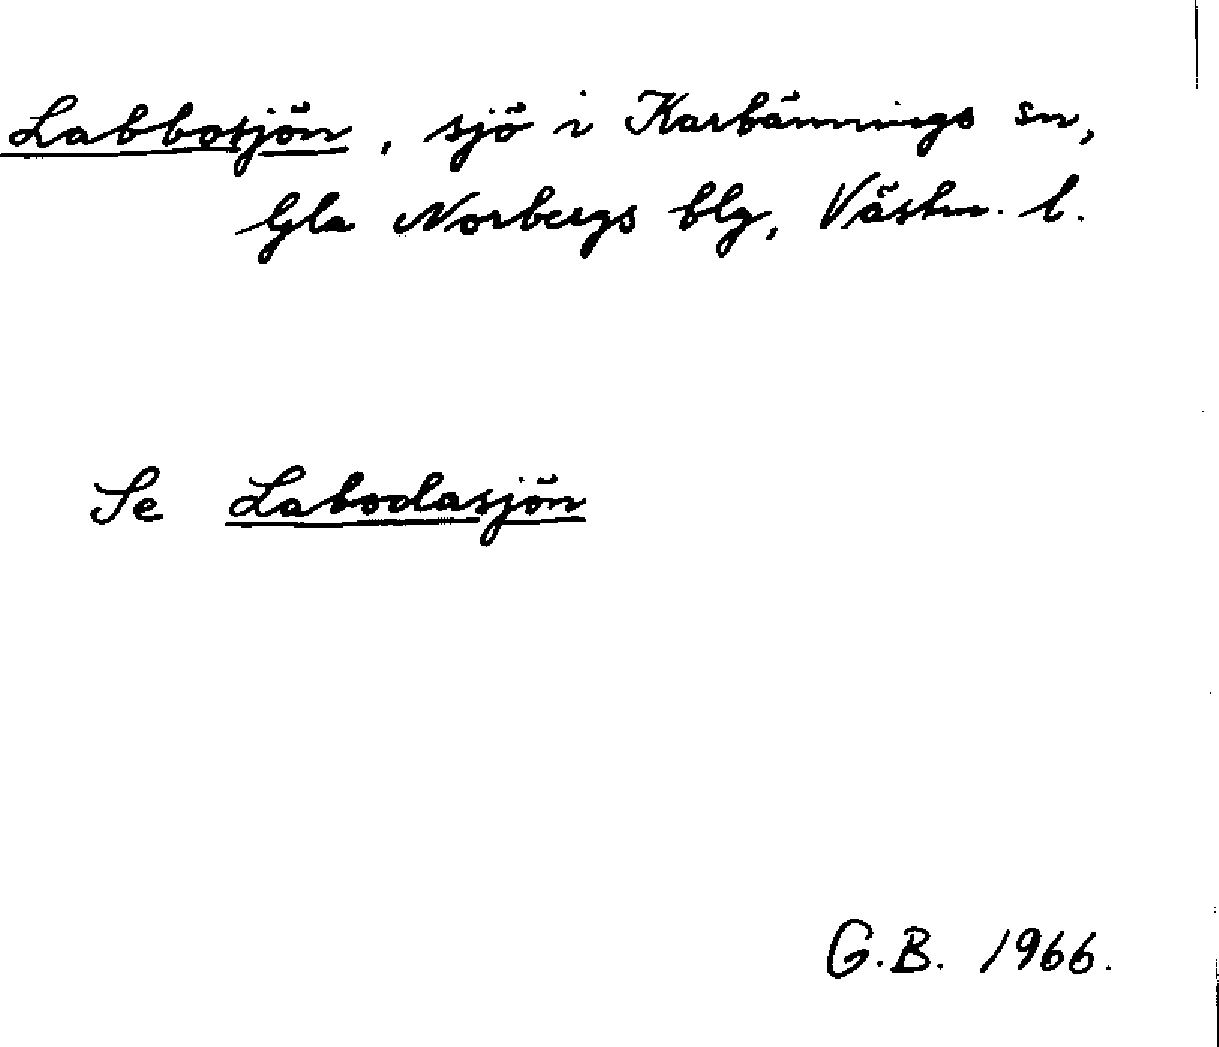 Labbosjön, sjö i Karbännings sn,
Gla Norbergs blg, Västm. l.
Se Labodasjön
G.B. 1966.